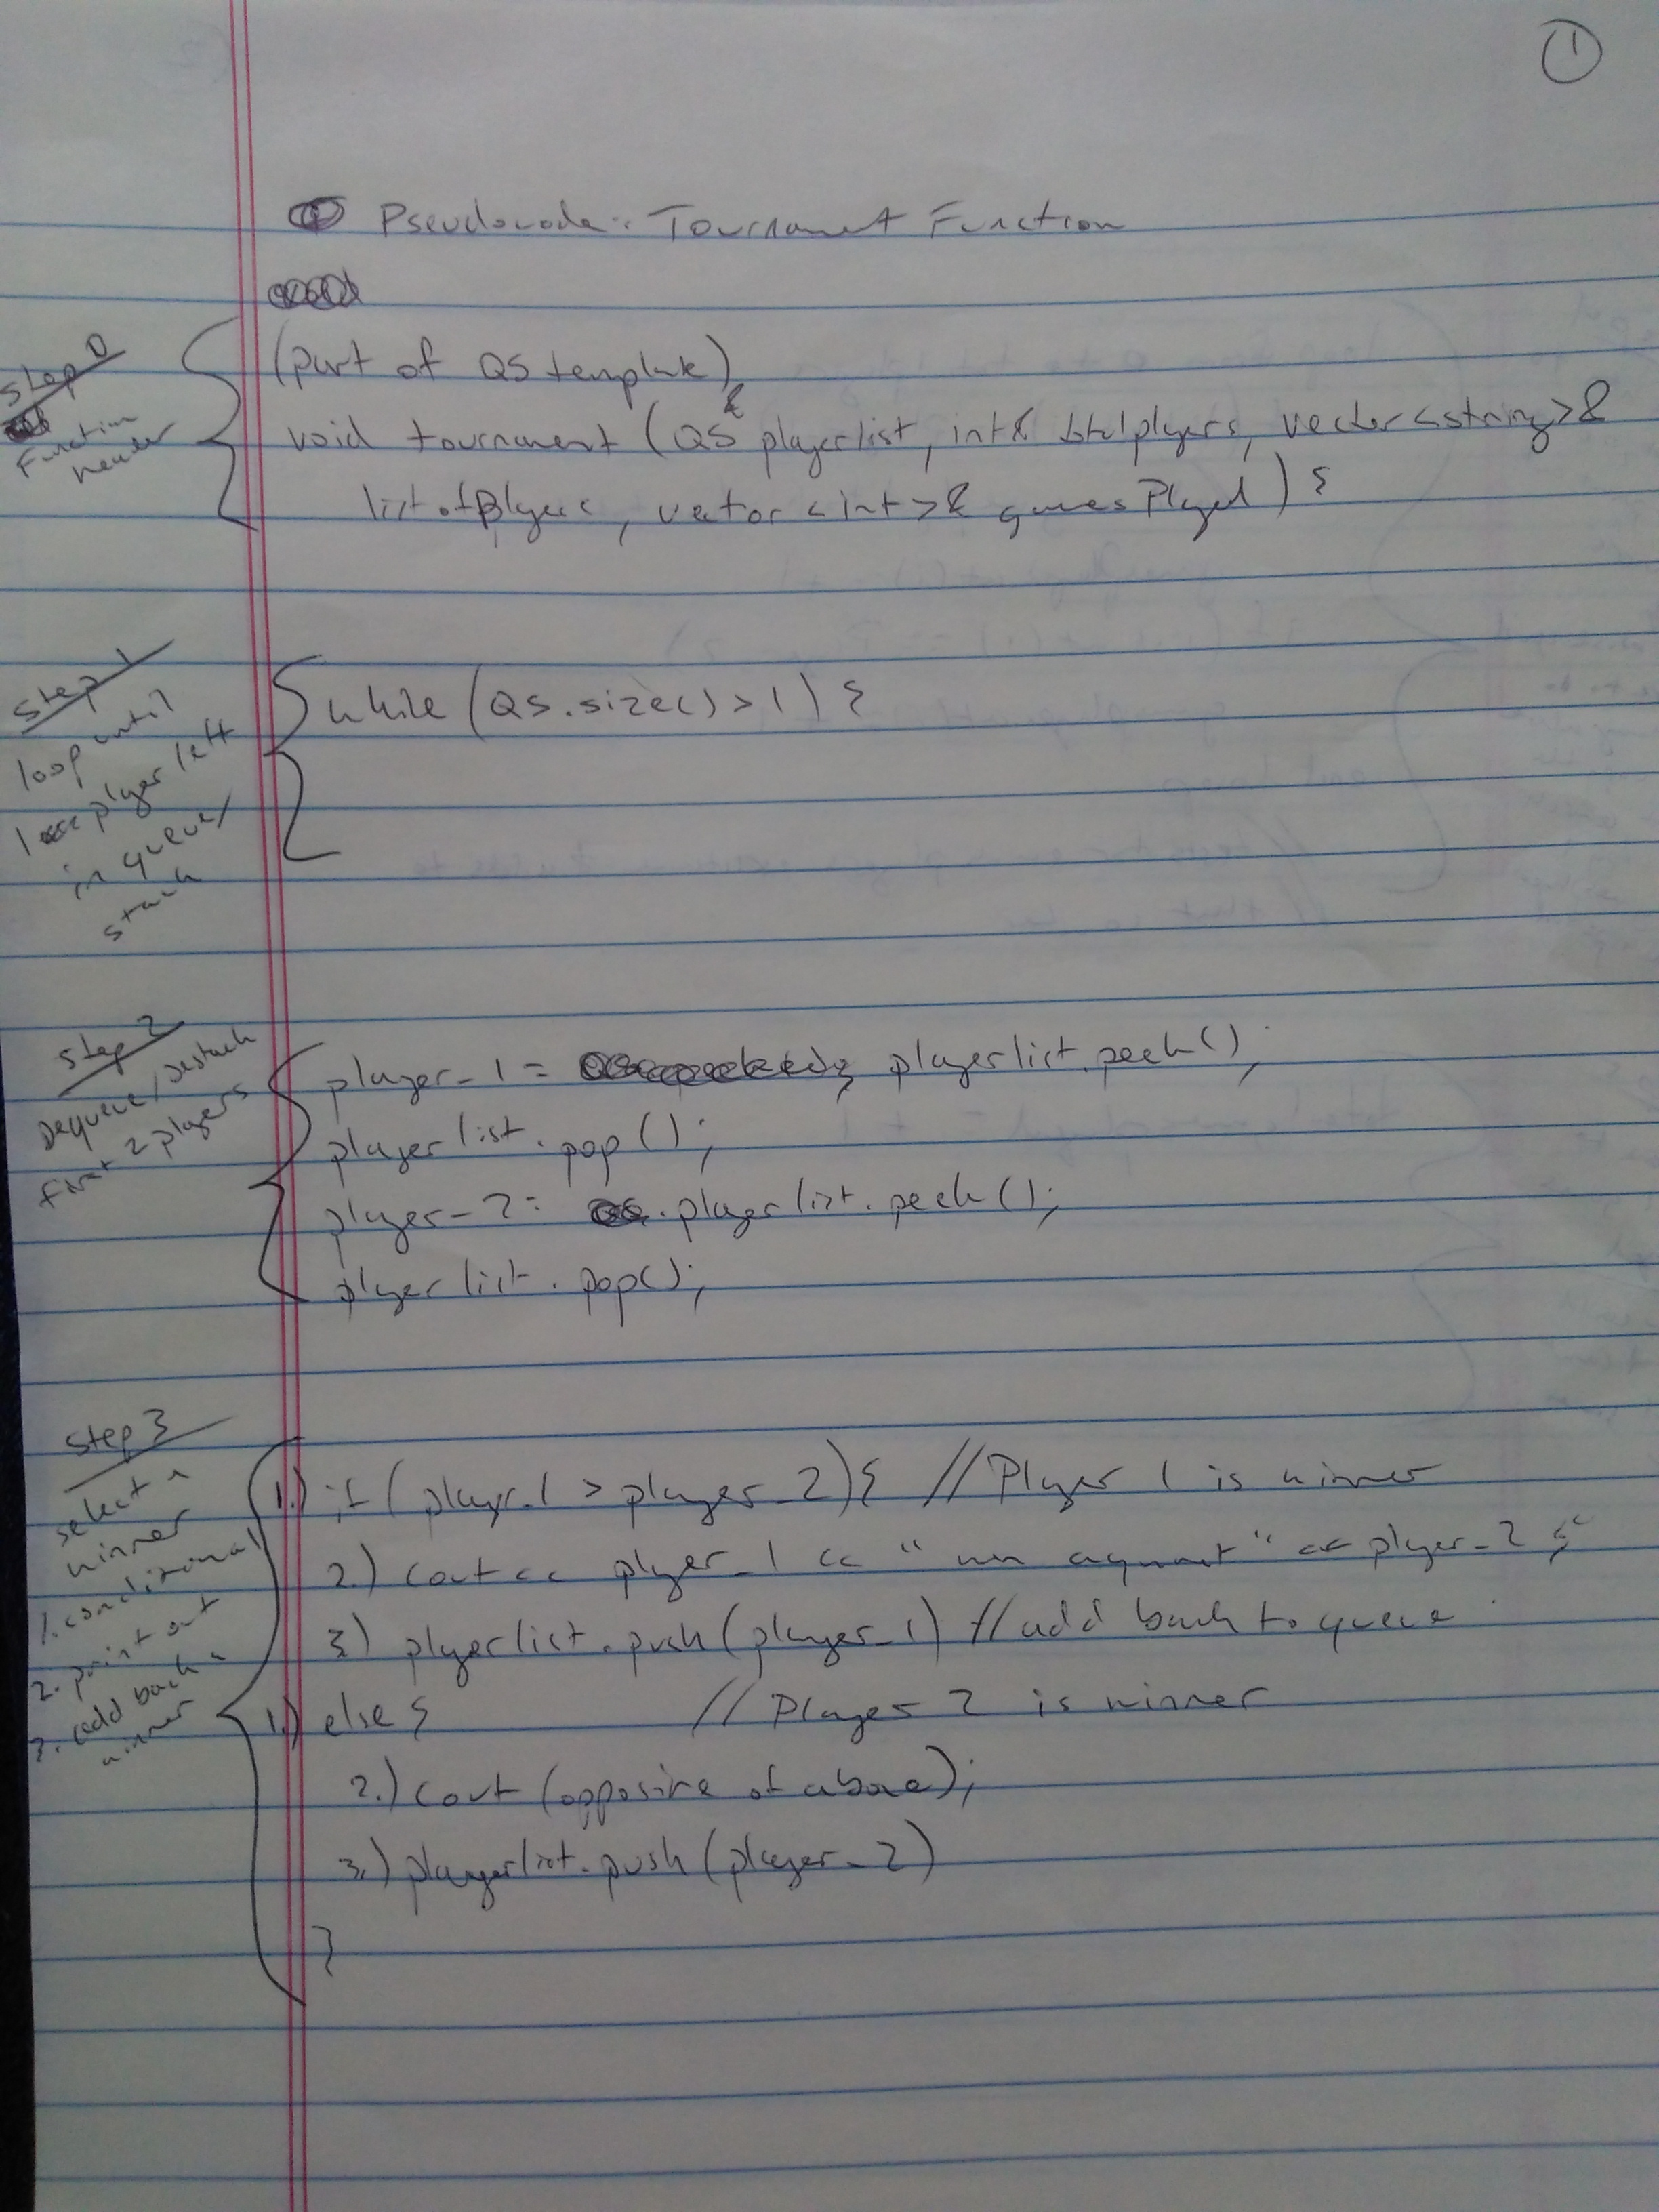 1
Pseudocode: Tournament Function
Step 0
Function header
(part of QS template)
void tournament (QS& playerlist, int& totalplayers, vector<string>&
listofPlayers, vector<int>& gamesPlayed) {
Step 1
loop until
1 player left
in queue/
stack
while (QS.size() > 1) {
Step 2
Dequeue/Destack
first 2 players
player_1 = playerlist.peek();
playerlist.pop();
player_2 = playerlist.peek();
playerlist.pop();
Step 3
select a
winner
1. conditional
2. print out
3. add back a
winner
1.) if (player_1 > player_2) { // Player 1 is winner
2.) cout << player_1 << " won against " << player_2;
3.) playerlist.push(player_1) // add back to queue
1.) else { // Player 2 is winner
2.) cout (opposite of above);
3.) playerlist.push(player_2)
}